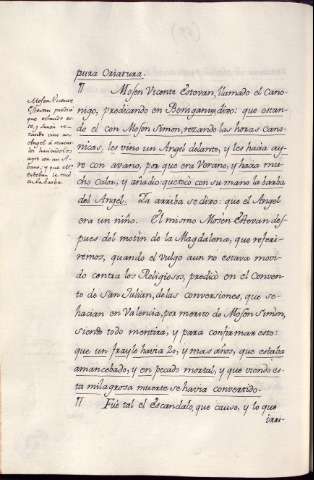 pura Criatura.
¶ Mosen Vicente Estevan, llamado el Cano-
nigo, predicando en Beniganim dixo: que estan-
do el con Mosen Simon, rezando las horas Cano-
nicas, les vino un Angel delante, y les hacia ay-
re con avano, por que era Verano, y hacia mu-
cho Calor, y añadio que tocó con su mano la barba
del Angel. Ya arriba se dixo: que el Angel
era un niño. El mismo Mosen Estevan des-
pues del motin de la Magdalena, que referi-
remos, quando el Vulgo aun no estava movi-
do contra los Religiosos, predicó en el Conven-
to de San Julian, de las conversiones, que se
hacian en Valencia, por merito de Mosen Simon,
siendo todo mentira, y para confirmar esto:
que un frayle havia 20, y mas años, que estaba
amancebado, y en pecado mortal, y que viendo es-
ta milagrosa muerte se havia convertido.
¶ Fue tal el Escandalo, que causo, y lo que
Mosen Vicente
Estevan predicó
que estando el
Angel